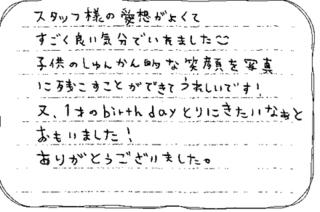 スタッフ様の愛想がよくて
すごく良い気分でいれました☺
子供のしゅんかん的な笑顔を写真
に残こすことができてうれしいです!
又、1才のbirthdayとりにきたいなぁと
おもいました!
ありがとうございました。